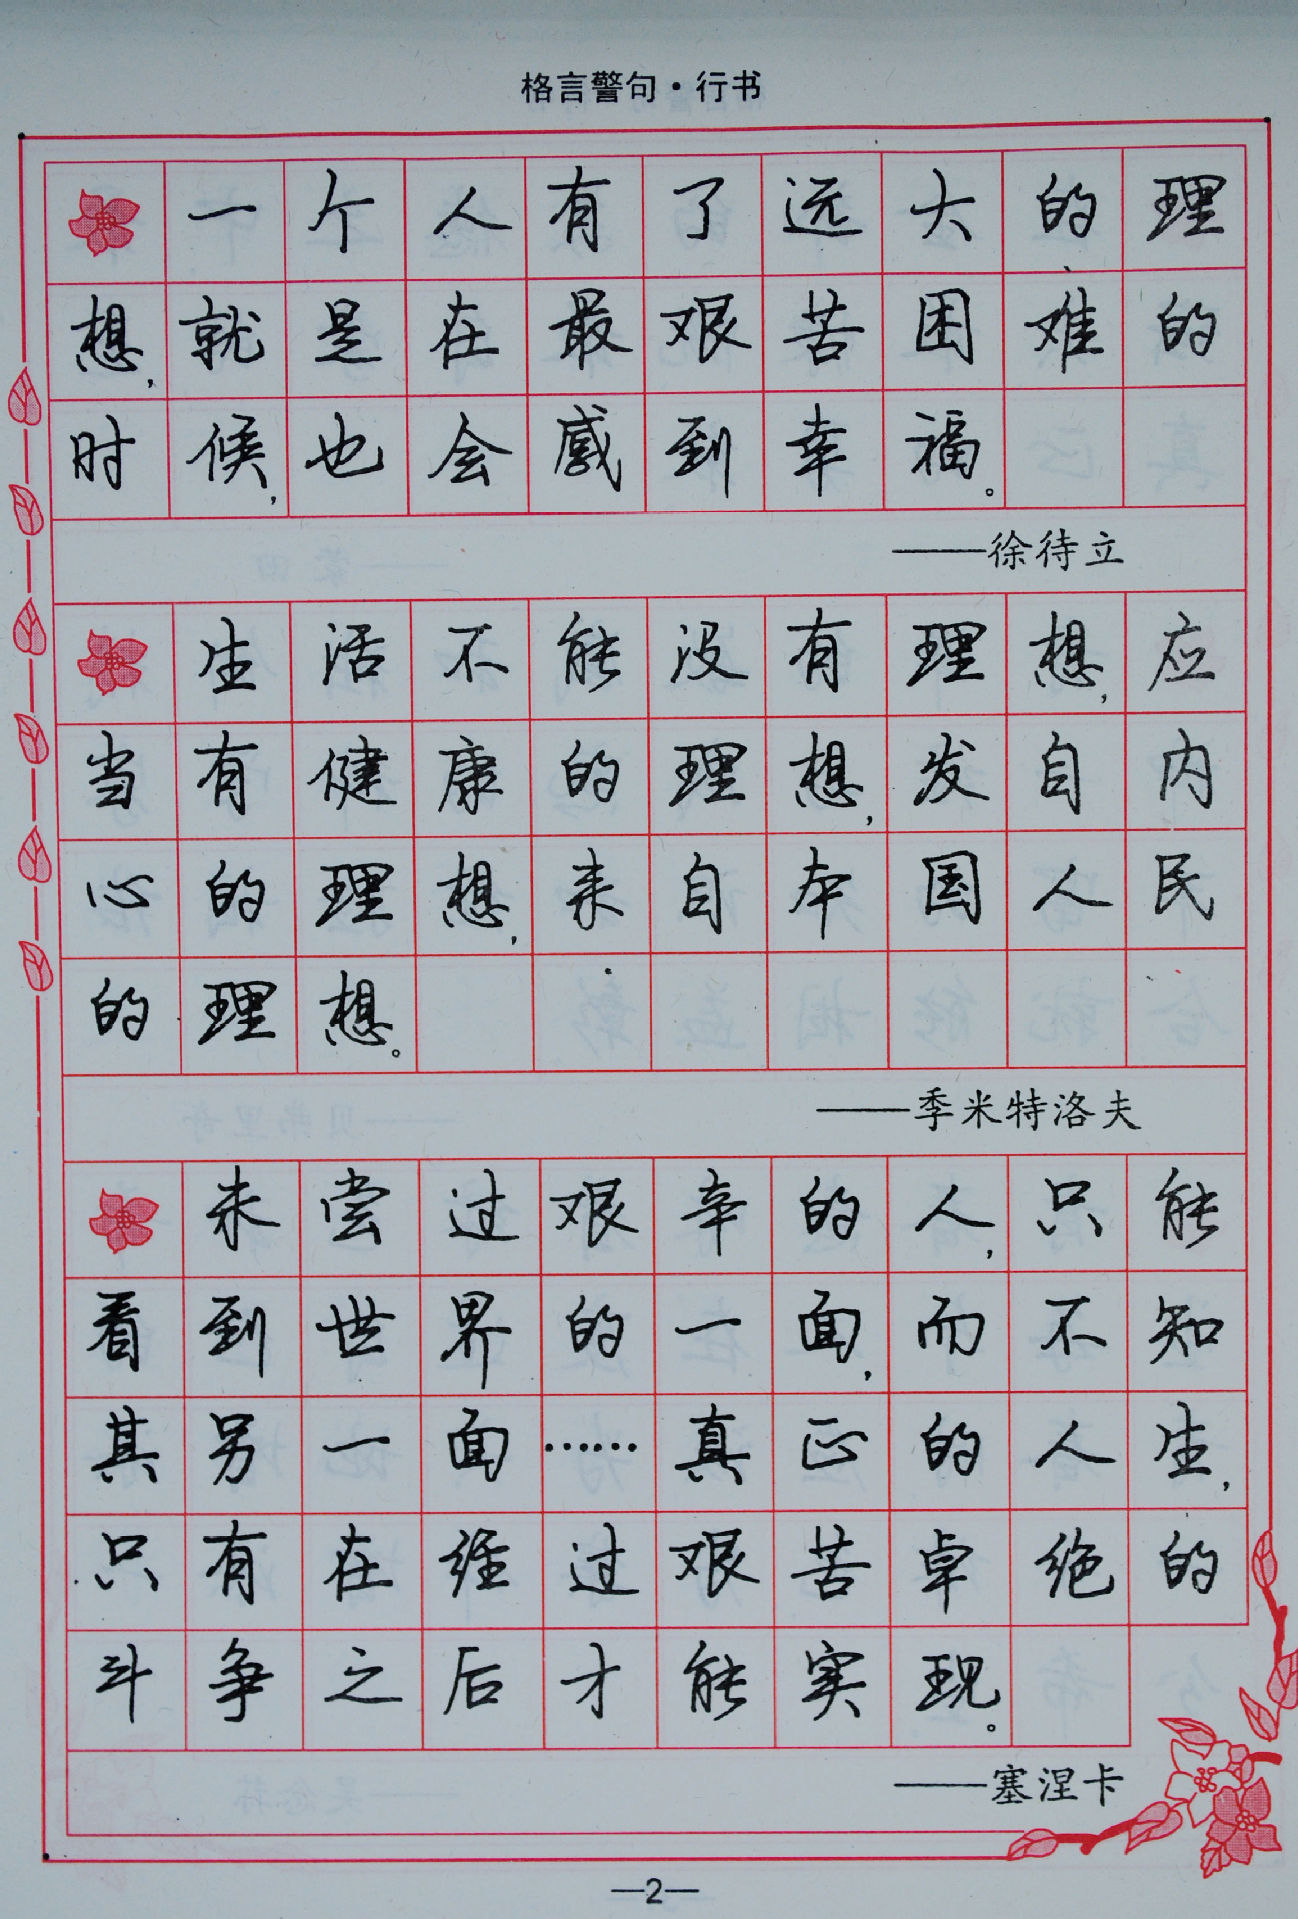 格言警句·行书
一个人有了远大的理
想,就是在最艰苦困难的
时候,也会感到幸福。
——徐待立
生活不能没有理想,应
当有健康的理想,发自内
心的理想,来自本国人民
的理想。
——季米特洛夫
未尝过艰辛的人,只能
看到世界的一面,而不知
其另一面……真正的人生,
只有在经过艰苦卓绝的
斗争之后才能实现。
——塞涅卡
—2—